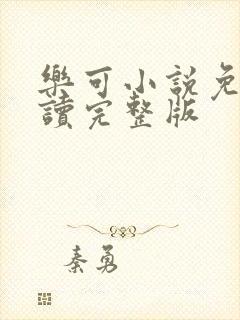 樂可小說免
讀完整版
秦勇